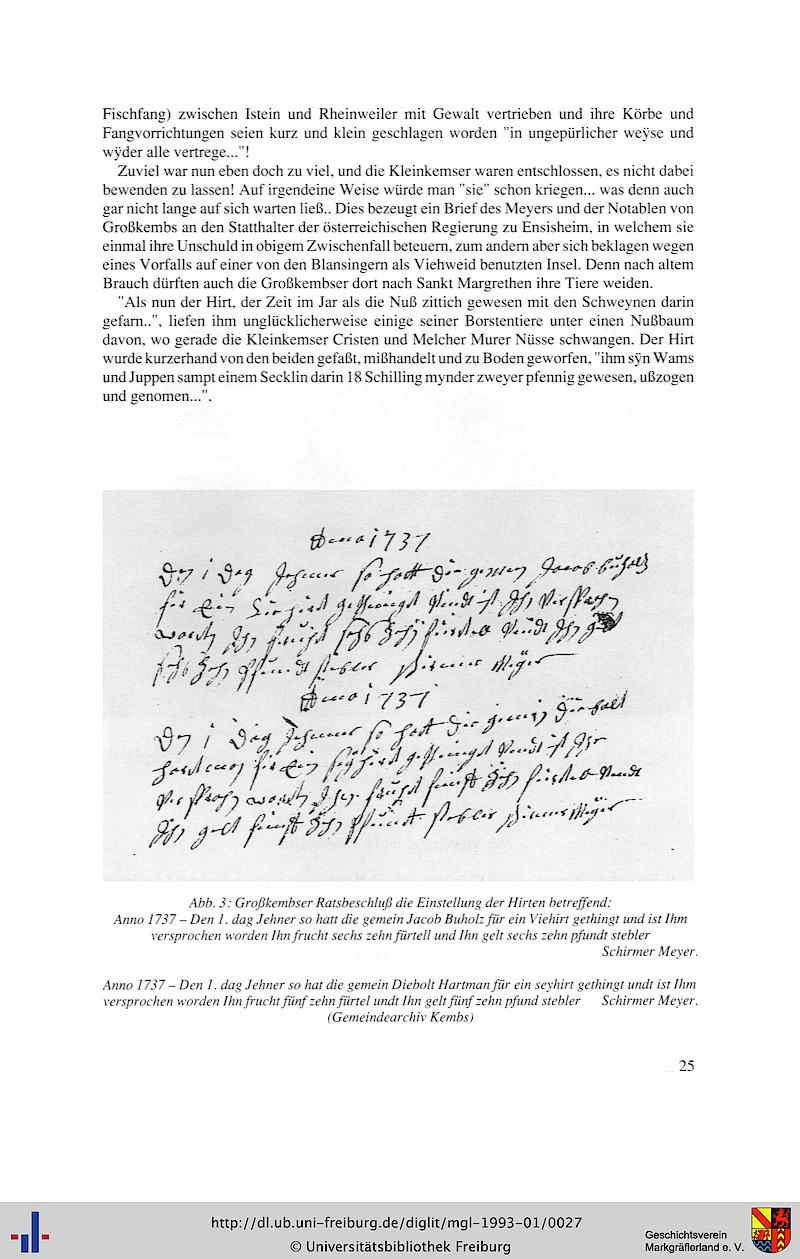 Fischfang) zwischen Istein und Rheinweiler mit Gewalt vertrieben und ihre Körbe und
Fangvorrichtungen seien kurz und klein geschlagen worden "in ungepürlicher weÿse und
wÿder alle vertrege..."!
Zuviel war nun eben doch zu viel, und die Kleinkemser waren entschlossen, es nicht dabei
bewenden zu lassen! Auf irgendeine Weise würde man "sie" schon kriegen... was denn auch
gar nicht lange auf sich warten ließ.. Dies bezeugt ein Brief des Meyers und der Notablen von
Großkembs an den Statthalter der österreichischen Regierung zu Ensisheim, in welchem sie
einmal ihre Unschuld in obigem Zwischenfall beteuern, zum andern aber sich beklagen wegen
eines Vorfalls auf einer von den Blansingern als Viehweid benutzten Insel. Denn nach altem
Brauch dürften auch die Großkembser dort nach Sankt Margrethen ihre Tiere weiden.
"Als nun der Hirt, der Zeit im Jar als die Nuß zittich gewesen mit den Schweynen darin
gefarn..", liefen ihm unglücklicherweise einige seiner Borstentiere unter einen Nußbaum
davon, wo gerade die Kleinkemser Cristen und Melcher Murer Nüsse schwangen. Der Hirt
wurde kurzerhand von den beiden gefaßt, mißhandelt und zu Boden geworfen, "ihm sÿn Wams
und Juppen sampt einem Secklin darin 18 Schilling mynder zweyer pfennig gewesen, ußzogen
und genomen...".
Anno 1737
Den 1 dag Jehner so hatt die gemein Jacob Buholz
für ein Viehirt gethingt undt ist Ihm versprochen
worden Ihn frucht sechs zehn fürtell undt Ihn gelt
sechs zehn pfundt stebler schirmer Meÿer
Anno 1737
Den 1 dag Jehner so hatt die gemein Diebolt
Hartman für ein seyhirt gethingt undt ist Ihm
versprochen worden Ihn frucht fünf zehn fürtel undt
Ihn gelt fünf zehn pfundt stebler schirmer Meÿer
Abb. 3: Großkembser Ratsbeschluß die Einstellung der Hirten betreffend:
Anno 1737 – Den 1. dag Jehner so hatt die gemein Jacob Buholz für ein Viehirt gethingt und ist Ihm
versprochen worden Ihn frucht sechs zehn fürtell und Ihn gelt sechs zehn pfundt stebler
Schirmer Meyer.
Anno 1737 – Den 1. dag Jehner so hat die gemein Diebolt Hartman für ein seyhirt gethingt undt ist Ihm
versprochen worden Ihn frucht fünf zehn fürtel undt Ihn gelt fünf zehn pfund stebler Schirmer Meyer.
(Gemeindearchiv Kembs)
25
http://dl.ub.uni-freiburg.de/diglit/mgl-1993-01/0027
© Universitätsbibliothek Freiburg
Geschichtsverein
Markgräflerland e. V.